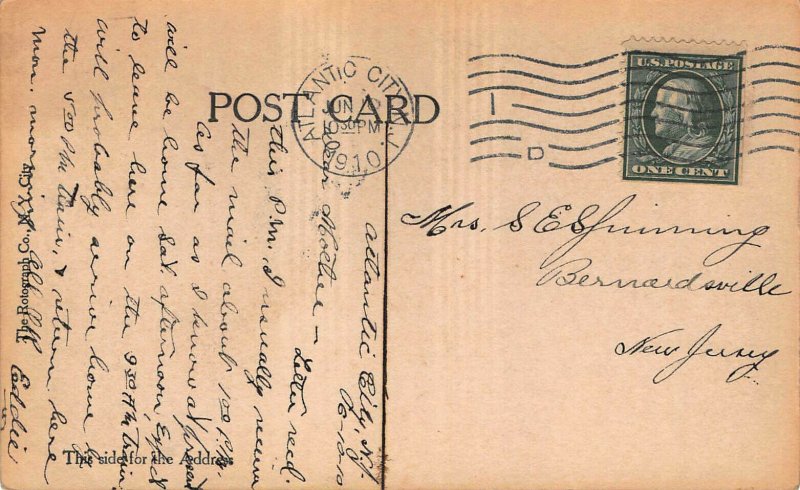 POST CARD
ATLANTIC CITY, N.J.
1910
D
U.S. POSTAGE
ONE CENT
Mrs. S E Spinning
Bernardsville
New Jersey
Atlantic City, N.J.
Dear Mother – Letter recd.
this P.M. I usually receive
the mail about 1 00 P.M.
As far as I know at present
will be home Sat. afternoon, Expect
to leave here on the 9 30 A M train,
will probably arrive home by
the 5 00 P M train, & return here
Mon. morning. All well
Eddie
The Rotograph Co., N. Y. City
This side for the Address